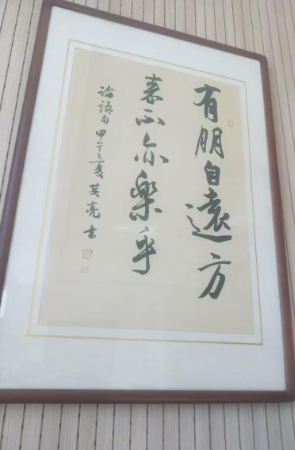 有朋自遠方
来不亦樂乎
論語句甲午之夏其亮书